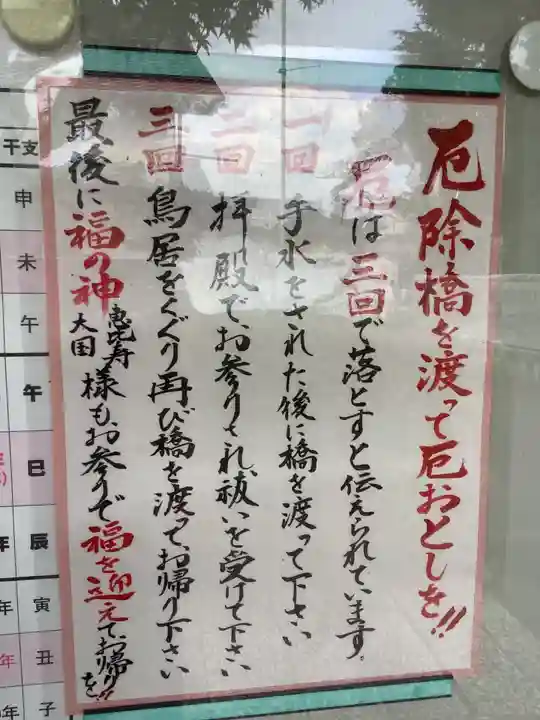 厄除橋を渡って厄おとしを!!
厄は三回で落とすと伝えられています。
一回 手水をされた後に橋を渡って下さい
二回 拝殿でお参りされ、祓いを受けて下さい
三回 鳥居をくぐり再び橋を渡って、お帰り下さい
最後に福の神 恵比寿 大国 様も、お参りで福を迎えてお帰りを!!
干支
申
未
午
午
巳
年
辰
年
寅
年
丑
子